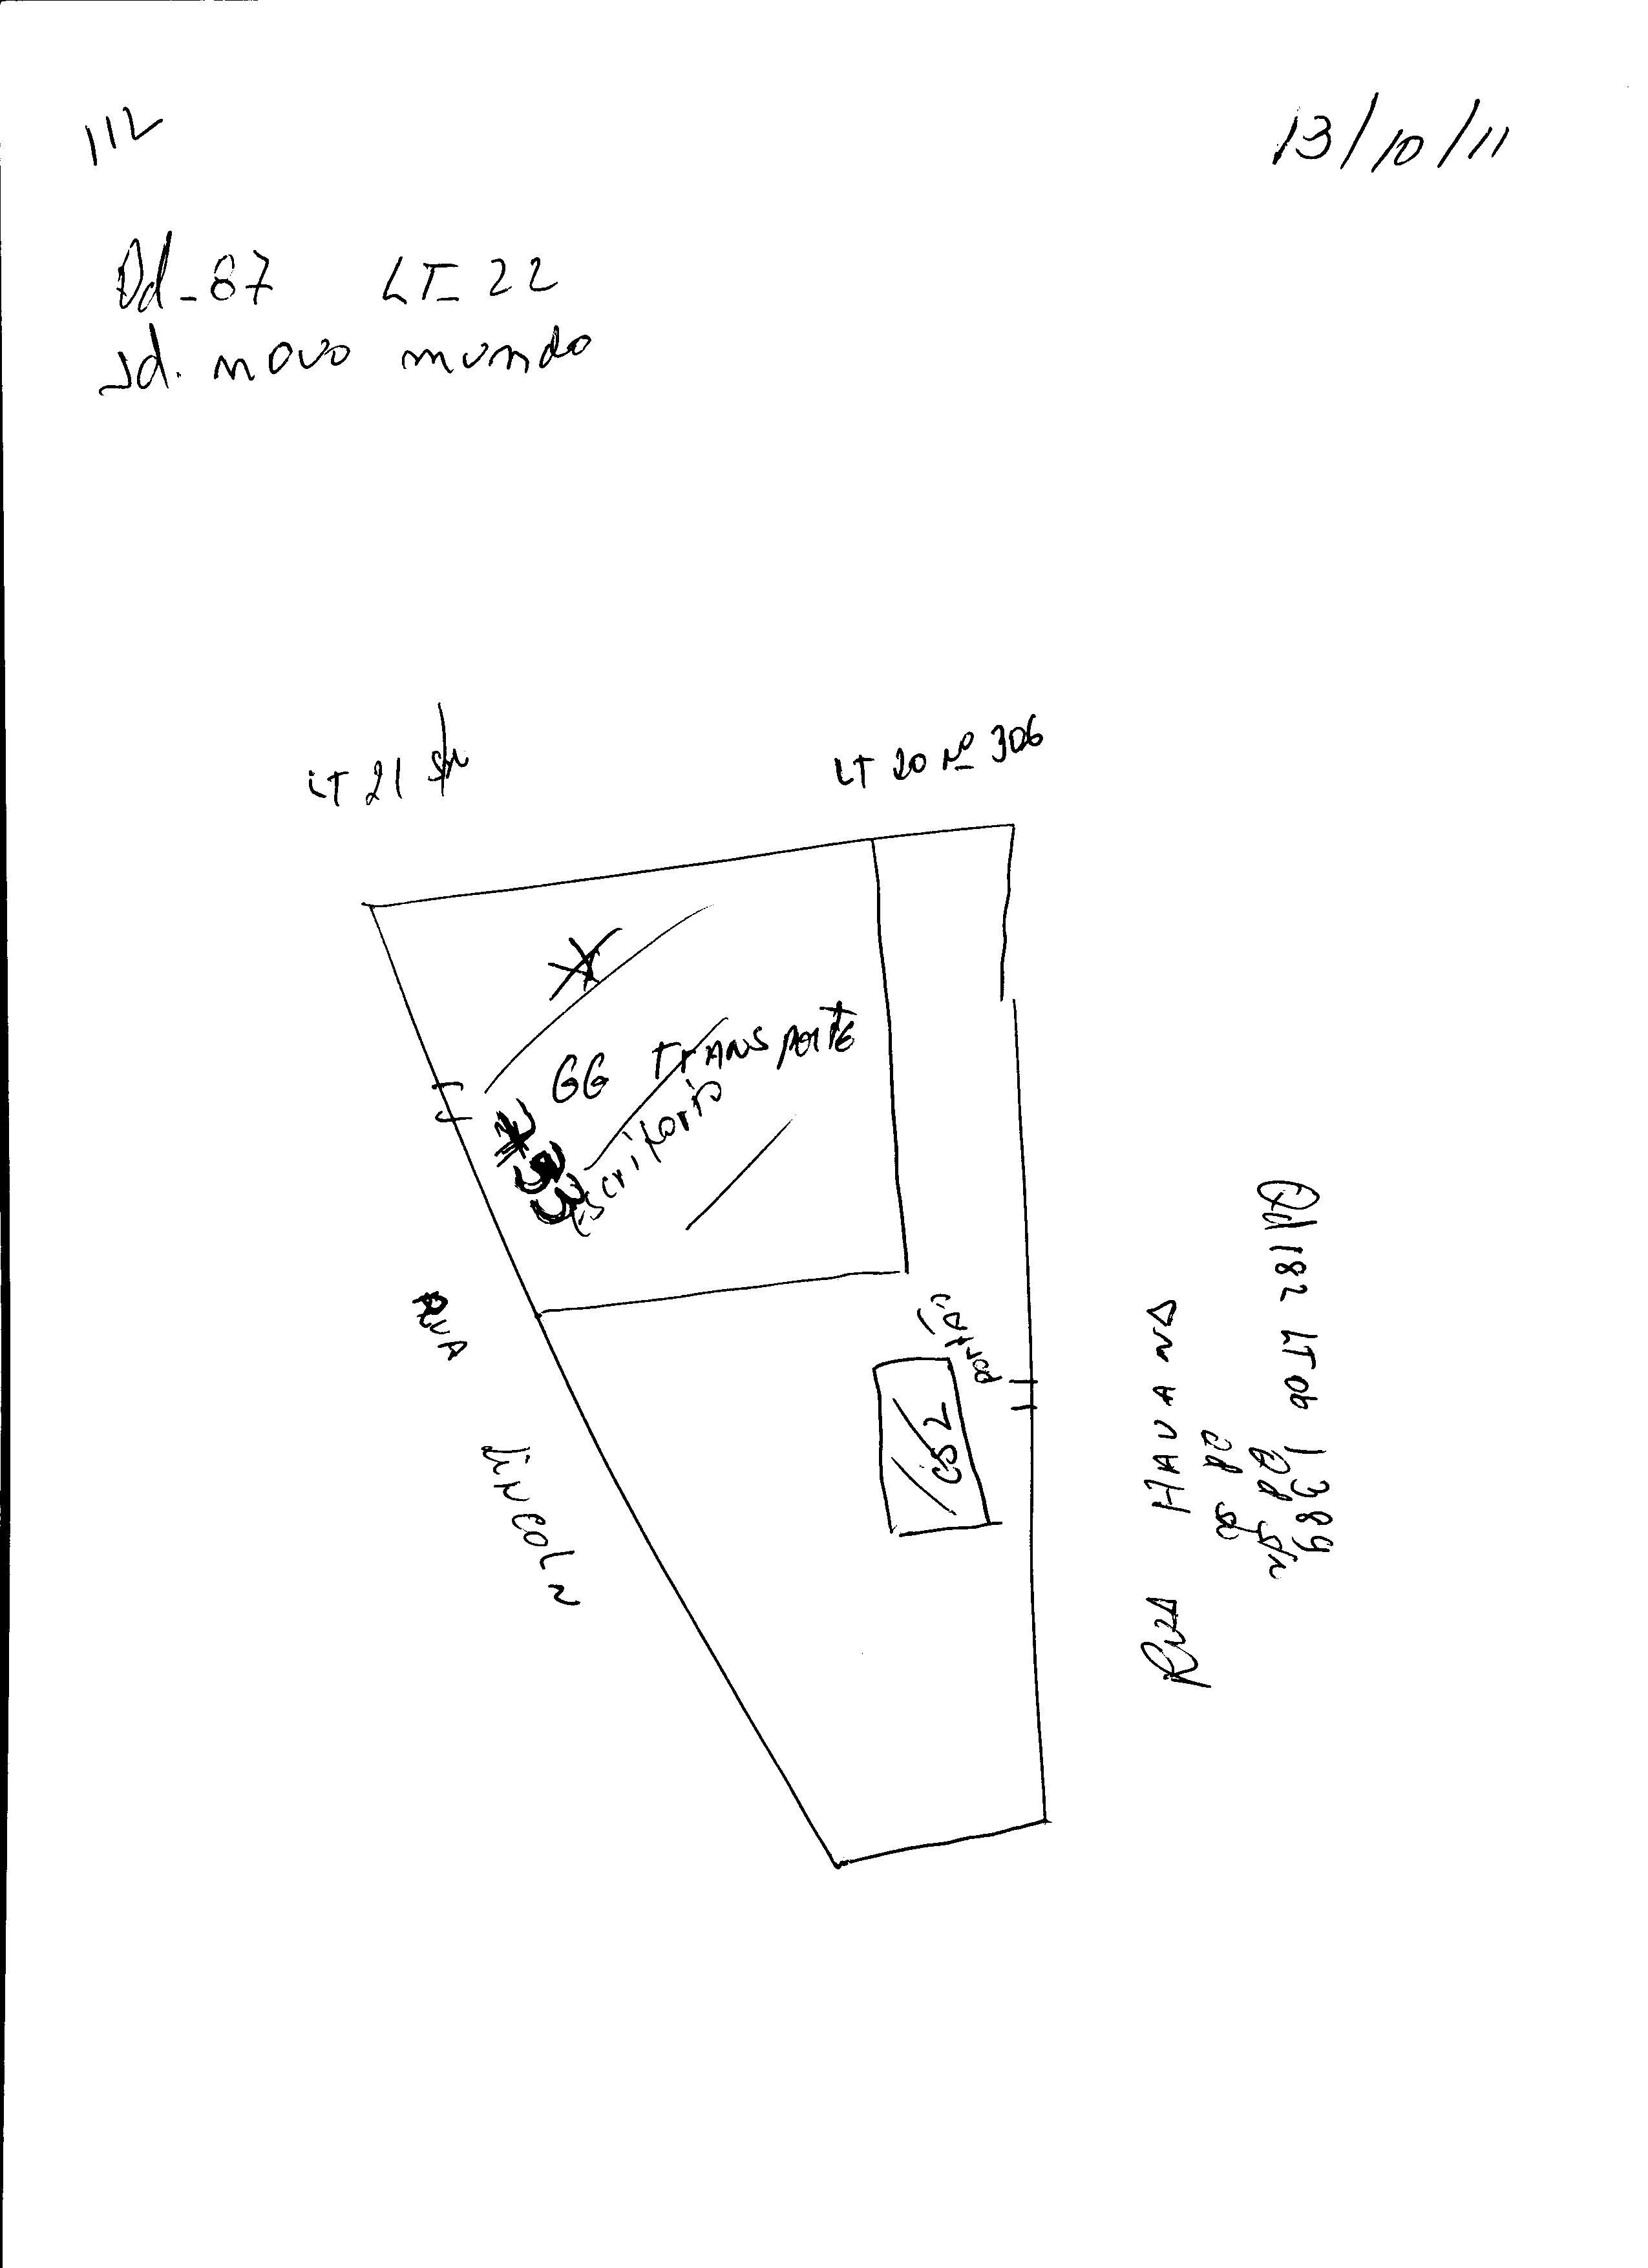 112
13/10/11
Qd-87 LT-22
Jd. novo mundo
LT 21 S/N
LT 20 Nº 306
GG TRANSPORTE
escritorio
RUA LINCOLN
portão
CS 2
RUA HAVANA
Qd 182 LT 06